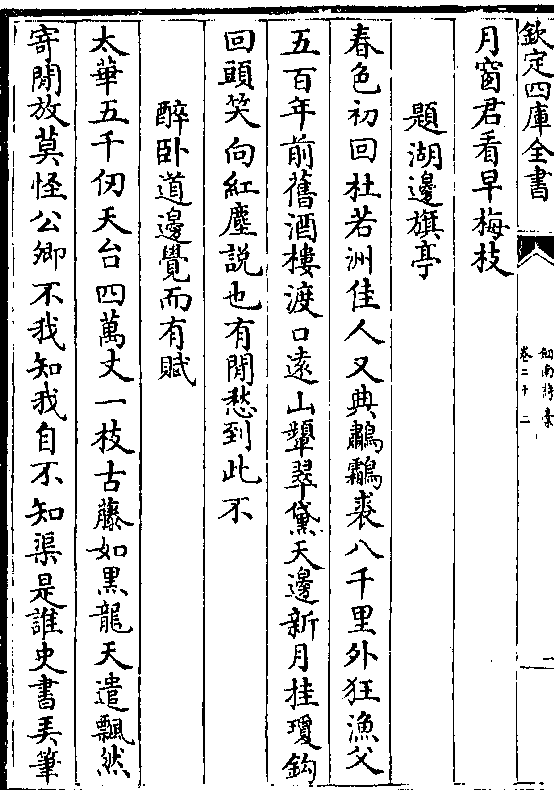 欽定四庫全書
劍南詩稾
卷二十二
一
月窗君看早梅枝
題湖邊旗亭
春色初回杜若洲佳人又典鷫鸘裘八千里外狂漁父
五百年前舊酒樓渡口遠山顰翠黛天邊新月挂瓊鈎
回頭笑向紅塵說也有閒愁到此不
醉臥道邊覺而有賦
太華五千仞天台四萬丈一枝古藤如黑龍天遣飄然
寄閒放莫怪公卿不我知我自不知渠是誰史書弄筆